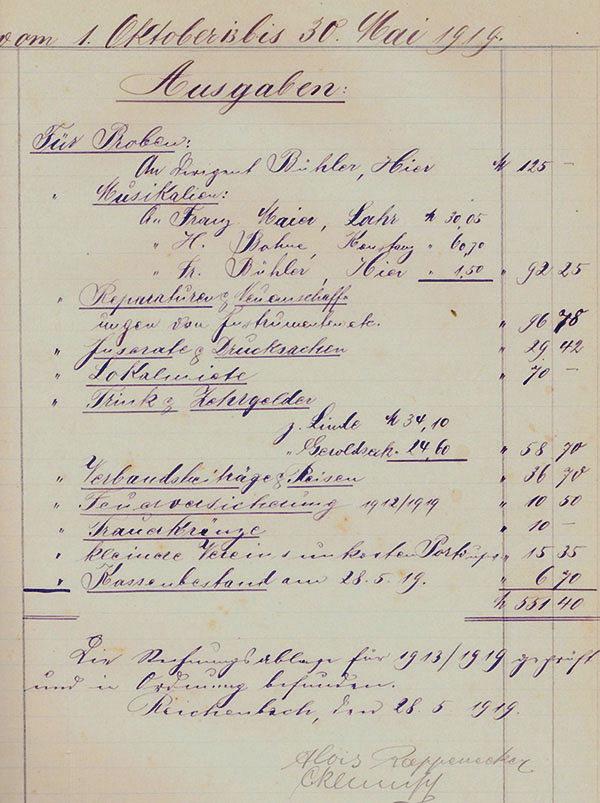 vom 1. Oktober 13 bis 30. Mai 1919.
Ausgaben:
Für Proben:
An Dirigent Bühler, Hier M 125 –
" Musikalien:
An Franz Maier, Lahr M 30,05
" H. Bohne, Konstanz " 60,70
" Fr. Bühler, Hier " 1,50 " 92 25
" Reparaturen & Neuanschaff-
ungen von Instrumenten etc. " 96 78
" Inserate & Drucksachen " 29 42
" Lokalmiete " 70 –
" Trink & Zehrgelder
z. Linde M 34,10
" Geroldseck 24,60 " 58 70
" Verbandsbeiträge & Reisen " 36 70
" Feuerversicherung 1912/1919 " 10 50
" Trauerkränze " 10 –
" kleinere Vereinsunkosten " 15 35
" Kassenbestand am 28.5.19. " 6 70
M 551 40
Die Rechnungsablage für 1913/1919 geprüft
und in Ordnung befunden.
Reichenbach, den 28.5.1919.
Alois Rappenecker